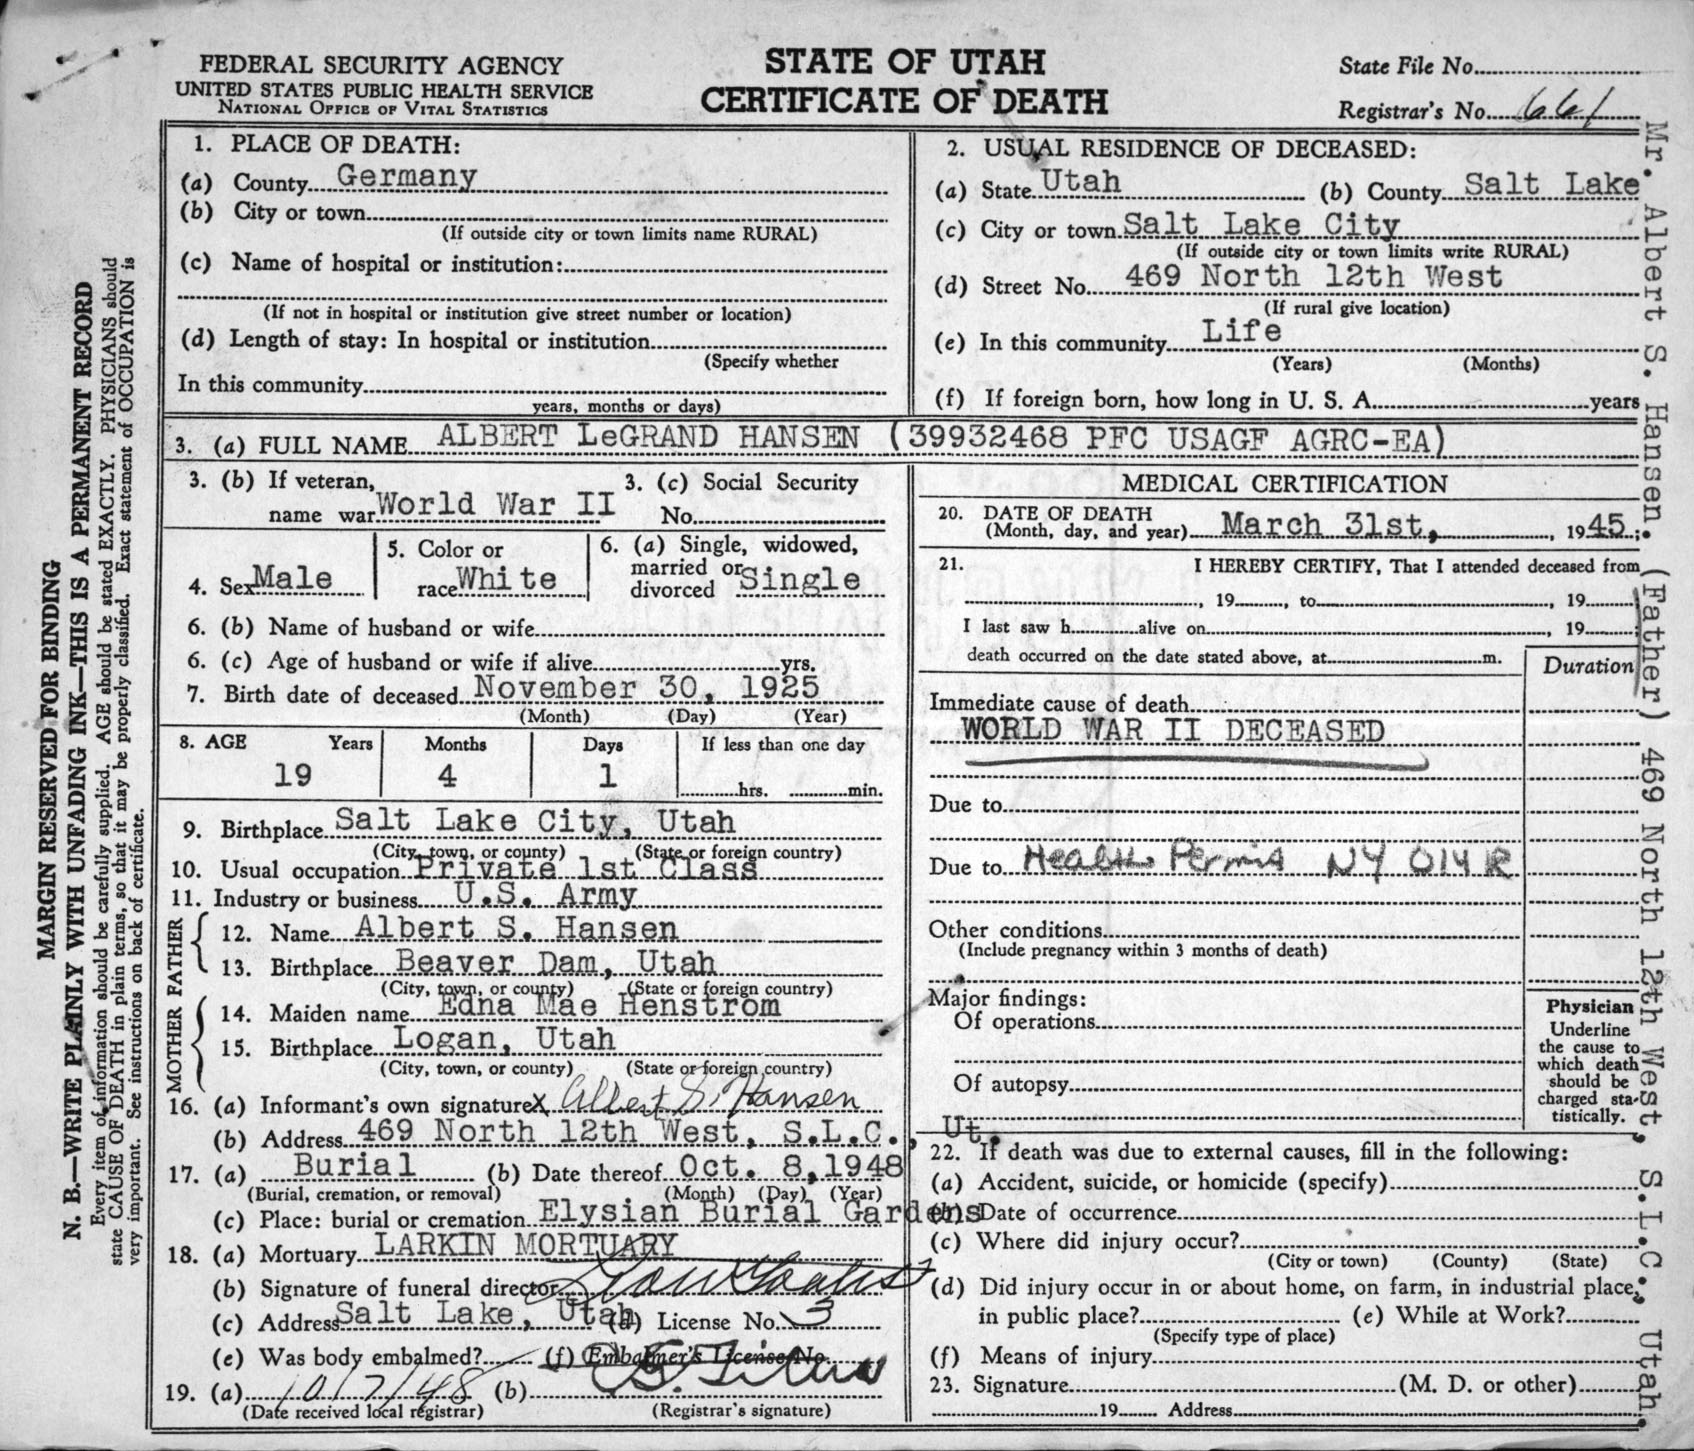 FEDERAL SECURITY AGENCY
UNITED STATES PUBLIC HEALTH SERVICE
NATIONAL OFFICE OF VITAL STATISTICS
STATE OF UTAH
CERTIFICATE OF DEATH
State File No.
Registrar's No. 661
MARGIN RESERVED FOR BINDING
N. B.—WRITE PLAINLY WITH UNFADING INK—THIS IS A PERMANENT RECORD
Every item of information should be carefully supplied. AGE should be stated EXACTLY. PHYSICIANS should
state CAUSE OF DEATH in plain terms, so that it may be properly classified. Exact statement of OCCUPATION is
very important. See instructions on back of certificate.
1. PLACE OF DEATH:
(a) County Germany
(b) City or town
(If outside city or town limits name RURAL)
(c) Name of hospital or institution:
(If not in hospital or institution give street number or location)
(d) Length of stay: In hospital or institution
(Specify whether
In this community
years, months or days)
2. USUAL RESIDENCE OF DECEASED:
(a) State Utah (b) County Salt Lake
(c) City or town Salt Lake City
(If outside city or town limits write RURAL)
(d) Street No. 469 North 12th West
(If rural give location)
(e) In this community Life
(Years) (Months)
(f) If foreign born, how long in U. S. A. years
3. (a) FULL NAME ALBERT LeGRAND HANSEN (39932468 PFC USAGF AGRC-EA)
3. (b) If veteran, name war World War II
3. (c) Social Security No.
4. Sex Male
5. Color or race White
6. (a) Single, widowed, married or divorced Single
6. (b) Name of husband or wife
6. (c) Age of husband or wife if alive yrs.
7. Birth date of deceased November 30, 1925
(Month) (Day) (Year)
8. AGE Years Months Days If less than one day
19 4 1 hrs. min.
9. Birthplace Salt Lake City, Utah
(City, town, or county) (State or foreign country)
10. Usual occupation Private 1st Class
11. Industry or business U.S. Army
FATHER
12. Name Albert S. Hansen
13. Birthplace Beaver Dam, Utah
(City, town, or county) (State or foreign country)
MOTHER
14. Maiden name Edna Mae Henstrom
15. Birthplace Logan, Utah
(City, town, or county) (State or foreign country)
16. (a) Informant's own signature X Albert S. Hansen
(b) Address 469 North 12th West, S.L.C., Ut.
17. (a) Burial (b) Date thereof Oct. 8, 1948
(Burial, cremation, or removal) (Month) (Day) (Year)
(c) Place: burial or cremation Elysian Burial Gardens
18. (a) Mortuary LARKIN MORTUARY
(b) Signature of funeral director
(c) Address Salt Lake, Utah (d) License No. 3
(e) Was body embalmed? (f) Embalmer's License No.
19. (a) 10/7/48 (b)
(Date received local registrar) (Registrar's signature)
MEDICAL CERTIFICATION
20. DATE OF DEATH
(Month, day, and year) March 31st, , 1945;
21. I HEREBY CERTIFY, That I attended deceased from
, 19 , to , 19
I last saw h alive on , 19 ;
death occurred on the date stated above, at m.
Duration
Immediate cause of death
WORLD WAR II DECEASED
Due to
Due to Health Permit NY 014 R
Other conditions
(Include pregnancy within 3 months of death)
Major findings:
Of operations
Of autopsy
Physician
Underline
the cause to
which death
should be
charged sta-
tistically.
22. If death was due to external causes, fill in the following:
(a) Accident, suicide, or homicide (specify)
(b) Date of occurrence
(c) Where did injury occur?
(City or town) (County) (State)
(d) Did injury occur in or about home, on farm, in industrial place,
in public place? (e) While at Work?
(Specify type of place)
(f) Means of injury
23. Signature (M. D. or other)
19 Address
Mr. Albert S. Hansen, (Father) 469 North 12th West, S.L.C. Utah.